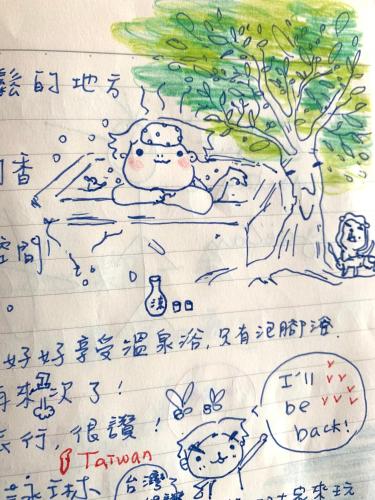 鬆的地方
香
空間
。
湯
好好享受溫泉浴,只有泡腳浴.
再來一次了!
行,很讚!
I'll
be
back!
Taiwan
台灣
來玩